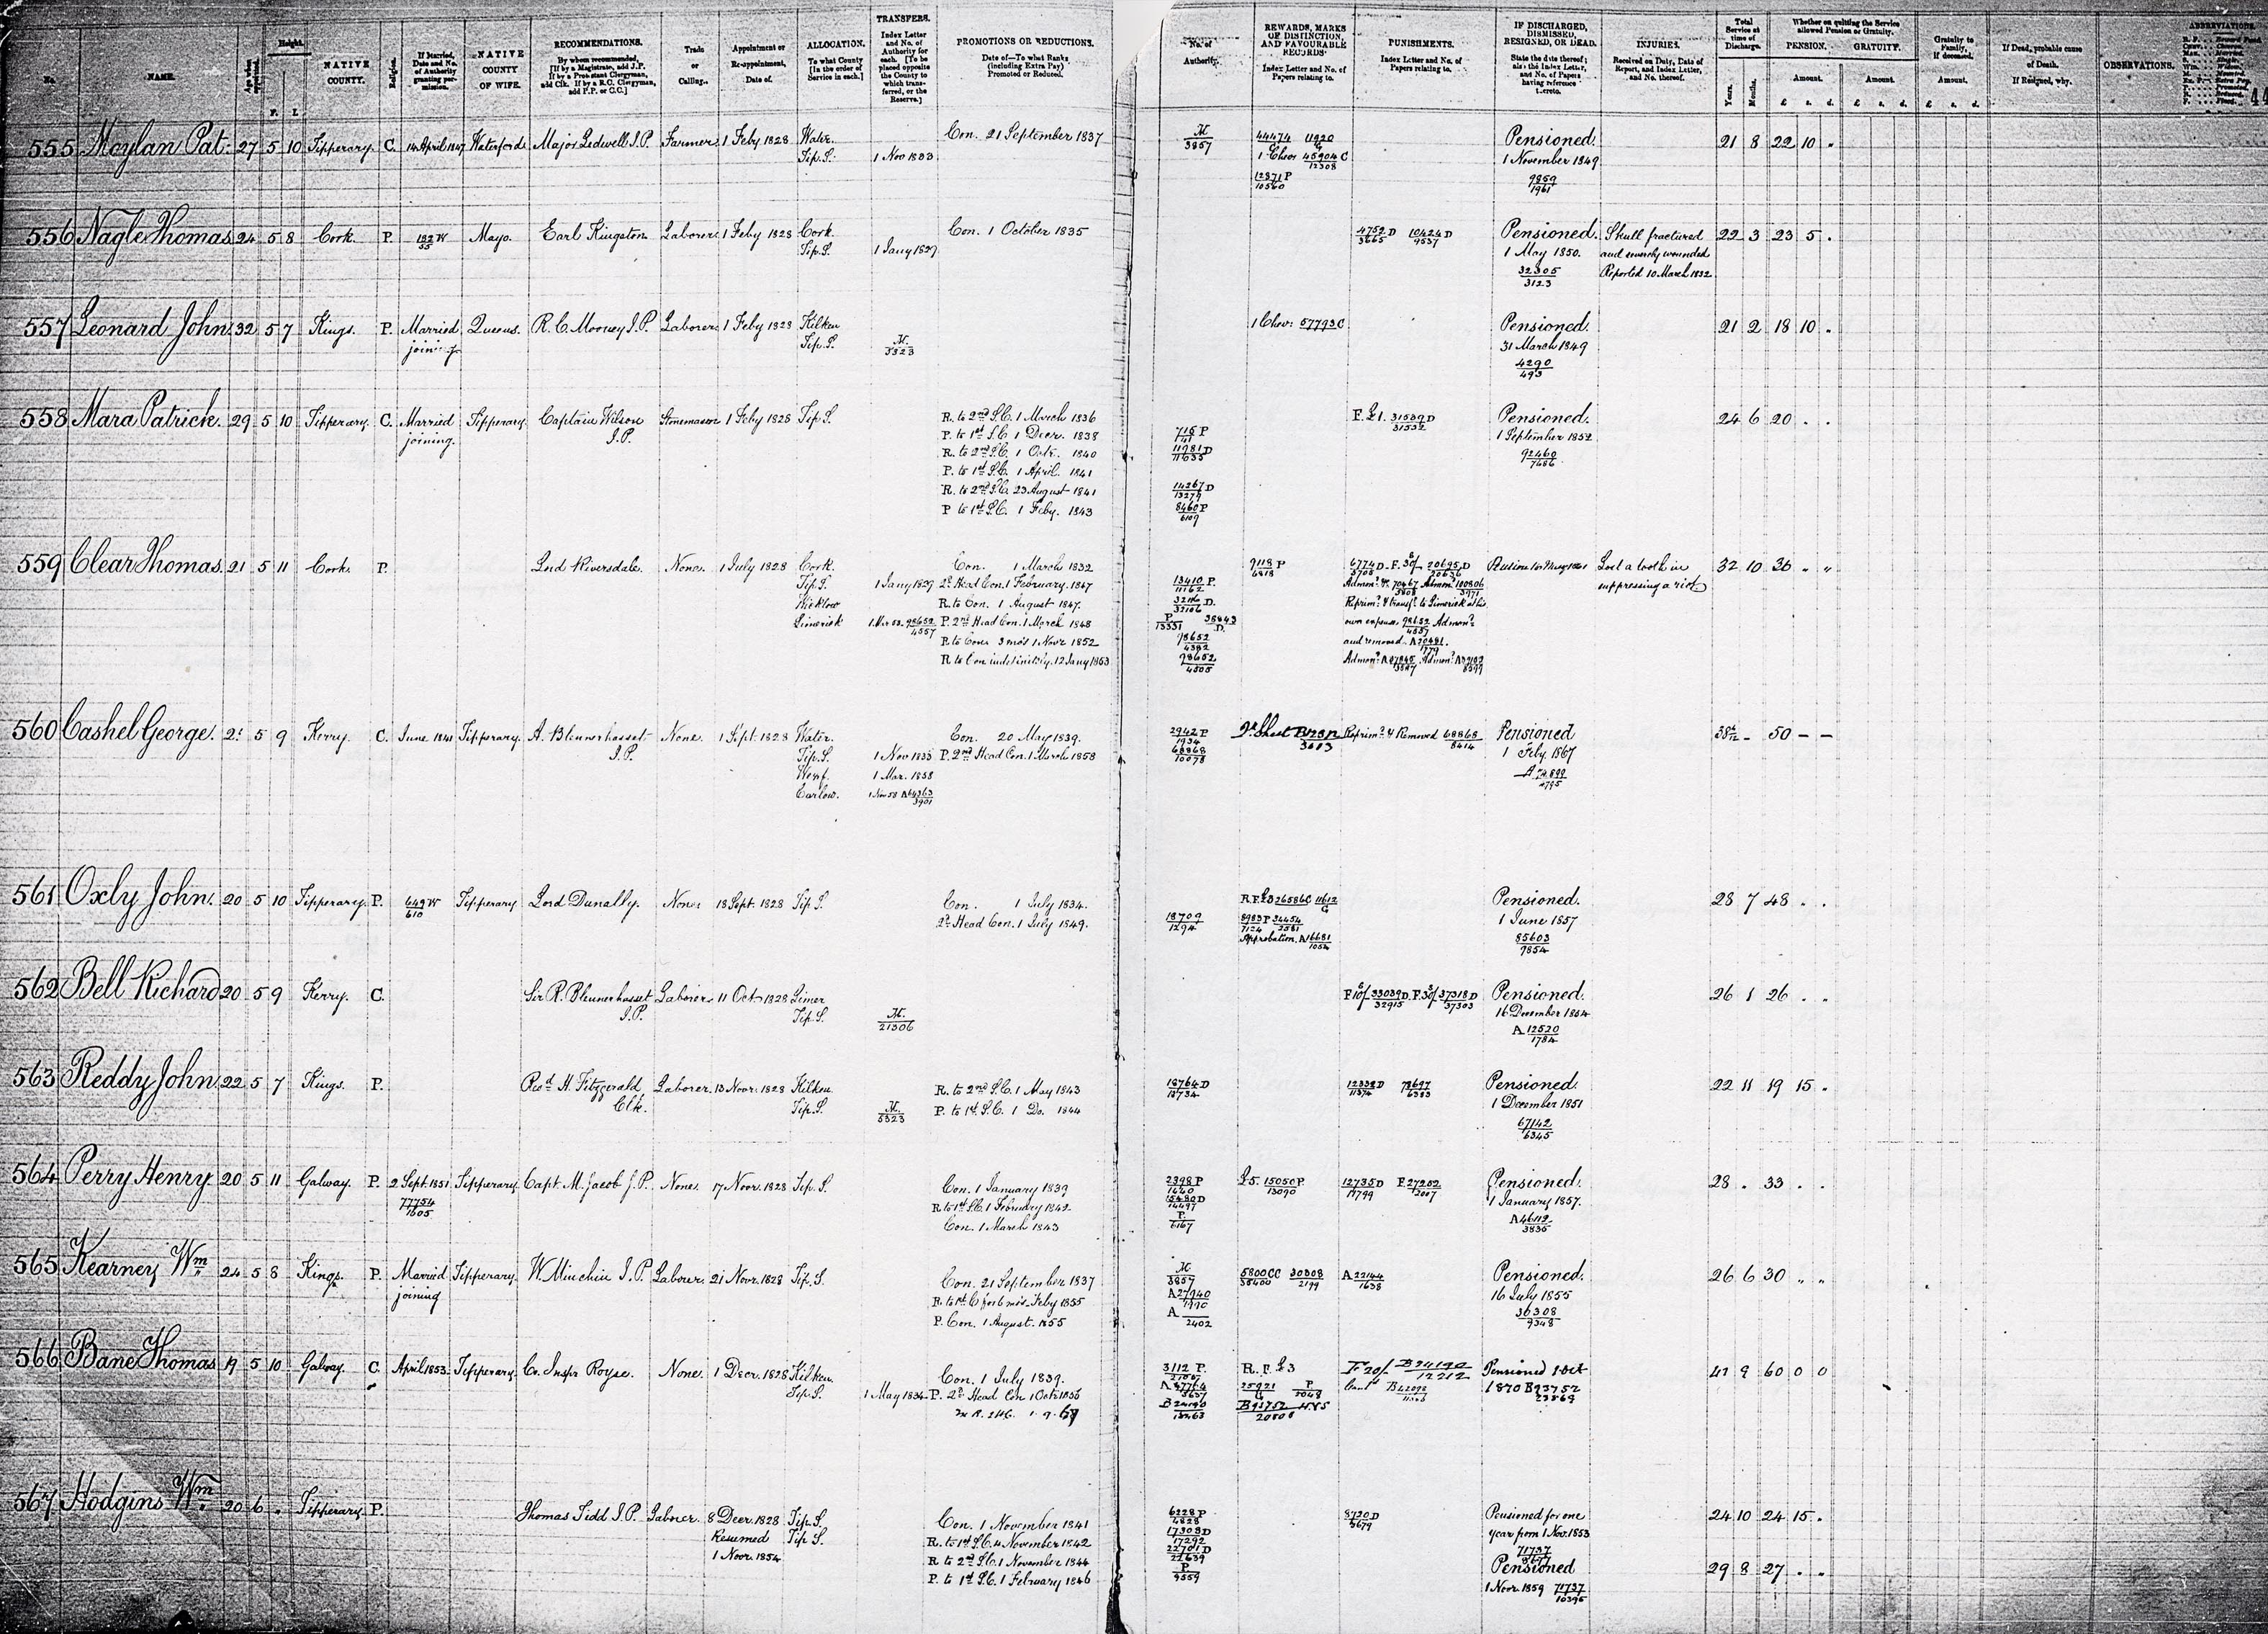 No.
NAME.
Age when appointed.
Height.
F. I.
NATIVE COUNTY.
Religion.
If Married, Date and No. of Authority granting permission.
NATIVE COUNTY OF WIFE.
RECOMMENDATIONS.
By whom recommended. [If by a Magistrate, add J.P. If by a Protestant Clergyman, add Clk. If by a R.C. Clergyman, add P.P. or C.C.]
Trade or Calling.
Appointment or Re-appointment, Date of.
ALLOCATION.
To what County [In the order of Service in each.]
TRANSFERS.
Index Letter and No. of Authority for each. [To be placed opposite the County to which transferred, or the Reserve.]
PROMOTIONS OR REDUCTIONS.
Date of—To what Ranks (including Extra Pay) Promoted or Reduced.
No. of Authority.
REWARDS, MARKS OF DISTINCTION, AND FAVOURABLE RECORDS
Index Letter and No. of Papers relating to.
PUNISHMENTS.
Index Letter and No. of Papers relating to.
IF DISCHARGED, DISMISSED, RESIGNED, OR DEAD.
State the date thereof; also the Index Letter, and No. of Papers having reference thereto.
INJURIES.
Received on Duty, Date of Report, and Index Letter, and No. thereof.
Total Service at time of Discharge.
Years. Months.
Whether on quitting the Service allowed Pension or Gratuity.
PENSION. GRATUITY.
Amount. Amount.
£ s. d. £ s. d.
Gratuity to Family, if deceased.
Amount.
£ s. d.
If Dead, probable cause of Death.
If Resigned, why.
OBSERVATIONS.
ABBREVIATIONS.
44
555 Moylan Pat. 27 5 10 Tipperary. C. 14 April 1847 Waterford Major Ledwell J.P. Farmer 1 Feby 1828 Water. Con. 21 September 1837 M/3857 44474 11920/G Pensioned. 21 8 22 10 "
Tip. S. 1 Nov 1833 1 Chev 45904 C/12308 1 November 1849
12871 P/10560 9859/1961
556 Nagle Thomas 24 5 8 Cork. P. 182 W/35 Mayo. Earl Kingston Laborer 1 Feby 1828 Cork. Con. 1 October 1835 4752 D/3665 10424 D/9537 Pensioned. Skull fractured 22 3 23 5 "
Tip. S. 1 Jany 1829 1 May 1850. and severely wounded
32305/3123 Reported 10 March 1832
557 Leonard John. 32 5 7 Kings. P. Married Queens. R. C. Mooney J.P. Laborer 1 Feby 1828 Kilken 1 Chev: 57793 C Pensioned. 21 2 18 10 "
joining Tip. S. M./3323 31 March 1849
4290/493
558 Mara Patrick. 29 5 10 Tipperary. C. Married Tipperary. Captain Wilson Stonemason 1 Feby 1828 Tip S. R. to 2nd S.C. 1 March 1836 F. £1. 31539 D/31532 Pensioned. 24 6 20 " "
joining. J.P. P. to 1st S.C. 1 Decr. 1838 715 P/141 1 September 1852
R. to 2nd S.C. 1 Octr. 1840 11981 D/11635 92460/7686
P. to 1st S.C. 1 April. 1841
R. to 2nd S.C. 23 August 1841 14267 D/13279
P to 1st S.C. 1 Feby. 1843 8460 P/6109
559 Clear Thomas. 21 5 11 Cork. P. Lord Riversdale. None. 1 July 1828 Cork. Con. 1 March 1832 9118 P/6818 6774 D/5708 F. 30/ 20695 D/20636 Lost a tooth in 32 10 36 " "
Tip. S. 1 Jany 1829 2d Head Con. 1 February. 1847 13410 P./11162 suppressing a riot
Wicklow R. to Con. 1 August 1847.
Limerick P. 2nd Head Con. 1 March 1848 Reprimd & transfd to Limerick at his
R. to Con. 3 mos 1 Novr 1852 98652/4382 own expense 98652/4557 Admond
R to Con indefinitely. 12 Jany 1853 98652/4505 and removed
560 Cashel George. 5 9 Kerry. C. June 1841 Tipperary. A. Blennerhasset None. 1 Sept. 1828 Water. Con. 20 May 1839. 2942 P/1934 Reprimd & Removed 68868/8414 Pensioned 50 – –
J.P. Tip. S. 1 Nov 1833 P. 2nd Head Con. 1 March 1858 68868/10078 1 Feby. 1867
Wexf. 1 Mar. 1858
Carlow. 1 Nov 58 A 64363/3901
561 Oxly John. 20 5 10 Tipperary. P. 649 W/610 Tipperary Lord Dunally. None. 18 Sept. 1828 Tip S. Con. 1 July 1834. R.F. £3 26586 C 11612/G Pensioned. 28 7 48 " "
2d Head Con. 1 July 1849. 18709/1294 8983 P/7124 34454/3581 1 June 1857
Approbation. A 16681/1054 85603/9854
562 Bell Richard 20 5 9 Kerry. C. Sir R. Blennerhasset Laborer. 11 Oct 1828 Limer F 10/ 33039 D/32915 F. 30/ 37318 D/37303 Pensioned. 26 1 26 " "
J.P. Tip. S. M./21306 16 December 1854
A 12520/1784
563 Reddy John. 22 5 7 Kings. P. Revd H. Fitzgerald Laborer. 13 Novr. 1828 Kilken R. to 2nd S.C. 1 May 1843 18764 D/18734 12338 D/11374 78697/6383 Pensioned. 22 11 19 15 "
Clk. Tip. S. M./3323 P. to 1st S.C. 1 Do. 1844 1 December 1851
67142/6345
564 Perry Henry 20 5 11 Galway. P. 2 Sept. 1851 Tipperary. Capt. M. Jacob J.P. None. 17 Novr. 1828 Tip. S. Con. 1 January 1839 2398 P/1640 £5. 15050 P./13090 12735 D/11799 F. 27252/2007 Pensioned. 28 " 33 " "
77754/1605 R to 1st S.C. 1 February 1842 15480 D/14497 1 January 1857.
Con. 1 March 1843 P./6167 A 46112/3836
565 Kearney Wm 24 5 8 Kings. P. Married Tipperary. W. Minchin J.P. Laborer. 21 Novr. 1828 Tip. S. Con. 21 September 1837 M/3857 5800 CC/38400 30308/2199 A 22144/1638 Pensioned. 26 6 30 " "
joining R. to 1st C for 6 mos Feby 1855 A 27940/1990 16 July 1855
P. Con. 1 August. 1855 A/2402 36308/9348
566 Bane Thomas 19 5 10 Galway. C April 1853. Tipperary. Co. Inspr Royse. None. 1 Decr. 1828 Kilken. Con. 1 July 1839. 3112 P. R. F. £3 F 20/ B 24190/12212 Pensioned 1 Oct 41 9 60 0 0
Tip. S. 1 May 1834 P. 2d Head Con 1 Oct 1856 25921/G P/2048 1870 B 93752/23869
B 93752/20808
567 Hodgins Wm 20 6 " Tipperary. P. Thomas Tidd J.P. Laborer. 8 Decr. 1828 Tip. S. Con. 1 November 1841 6228 P/4828 8720 D/5679 Pensioned for one 24 10 24 15 "
Resumed Tip S. R. to 1st S.C. 4 November 1842 17303 D/17292 year from 1 Nov. 1853
1 Novr. 1854 R to 2nd S.C. 1 November 1844 22701 D/22639 71737
P. to 1st S.C. 1 February 1846 P/9559 Pensioned 29 8 27 " "
1 Novr. 1859 71737/10396